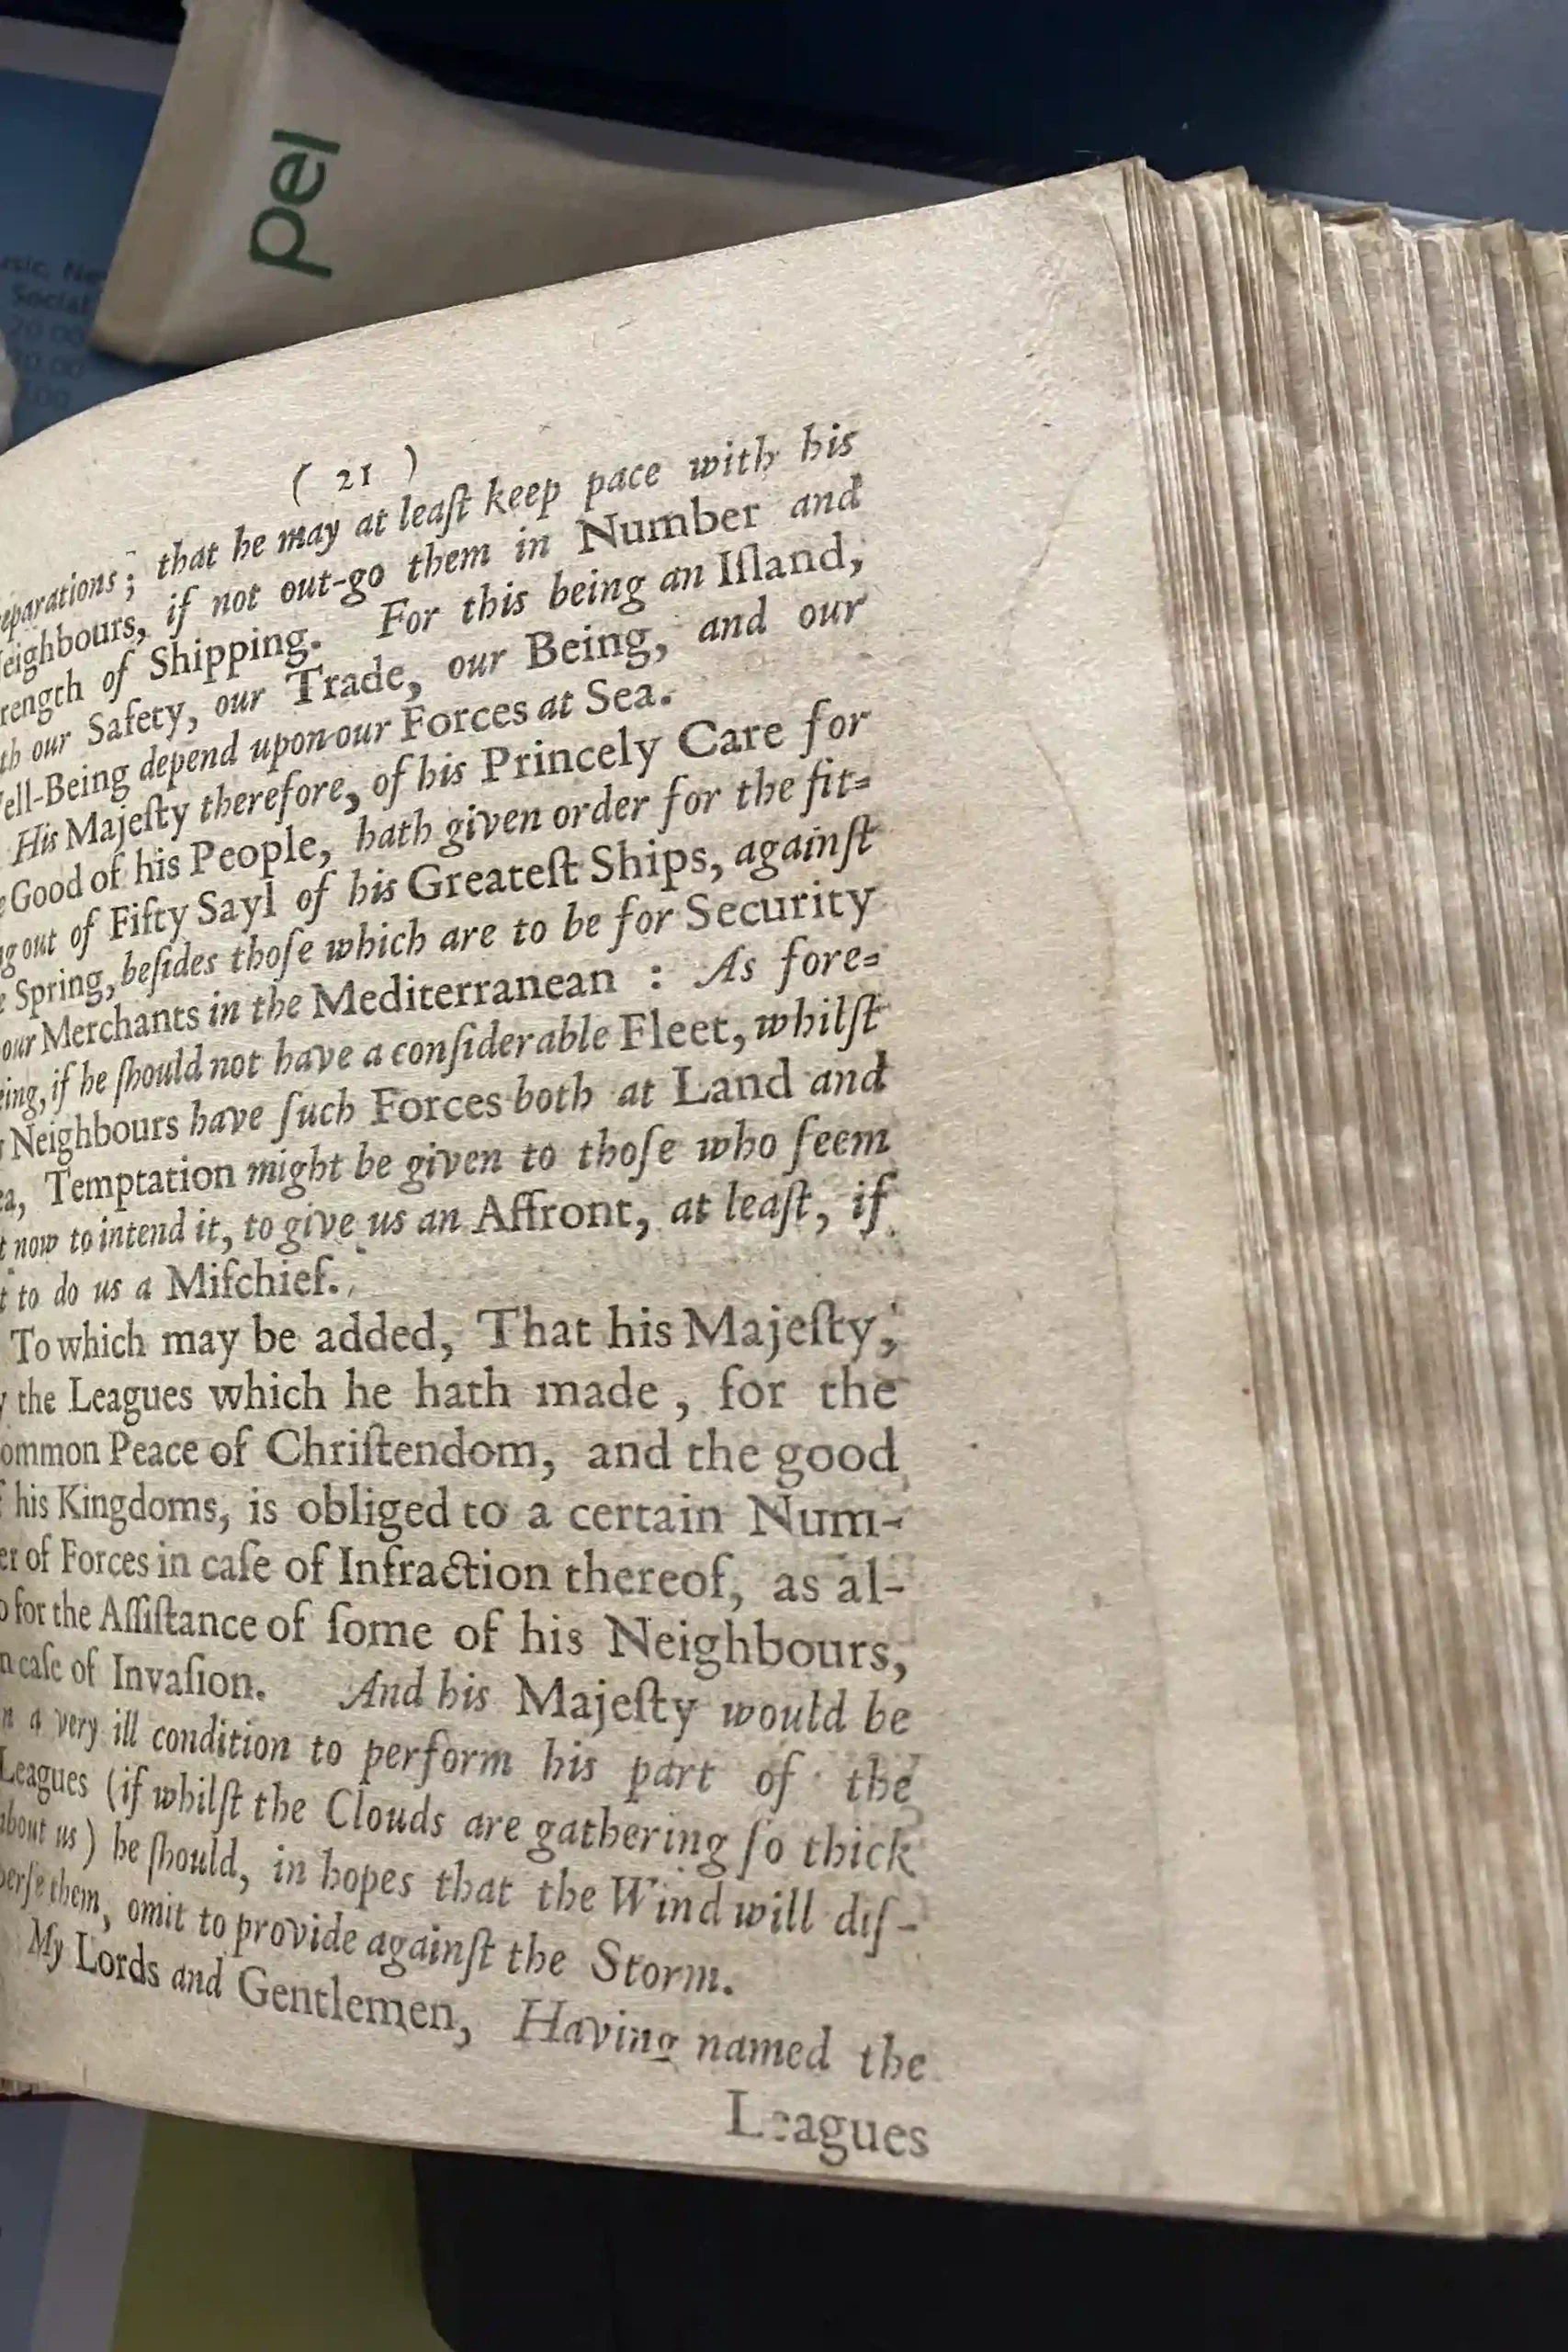 pel
Social
20.00
( 21 )
eparations ; that he may at leaſt keep pace with his
eighbours, if not out-go them in Number and
rength of Shipping. For this being an Iſland,
th our Safety, our Trade, our Being, and our
ell-Being depend upon our Forces at Sea.
His Majeſty therefore, of his Princely Care for
Good of his People, hath given order for the fit=
g out of Fifty Sayl of his Greateſt Ships, againſt
e Spring, beſides thoſe which are to be for Security
our Merchants in the Mediterranean : As fore=
ing, if he ſhould not have a conſiderable Fleet, whilſt
Neighbours have ſuch Forces both at Land and
a, Temptation might be given to thoſe who ſeem
t now to intend it, to give us an Affront, at leaſt, if
t to do us a Miſchief.
To which may be added, That his Majeſty,
y the Leagues which he hath made , for the
ommon Peace of Chriſtendom, and the good
f his Kingdoms, is obliged to a certain Num-
er of Forces in caſe of Infraction thereof, as al-
o for the Aſſiſtance of ſome of his Neighbours,
n caſe of Invaſion. And his Majeſty would be
n a very ill condition to perform his part of the
Leagues (if whilſt the Clouds are gathering ſo thick
about us ) he ſhould, in hopes that the Wind will diſ-
perſe them, omit to provide againſt the Storm.
My Lords and Gentlemen, Having named the
Leagues